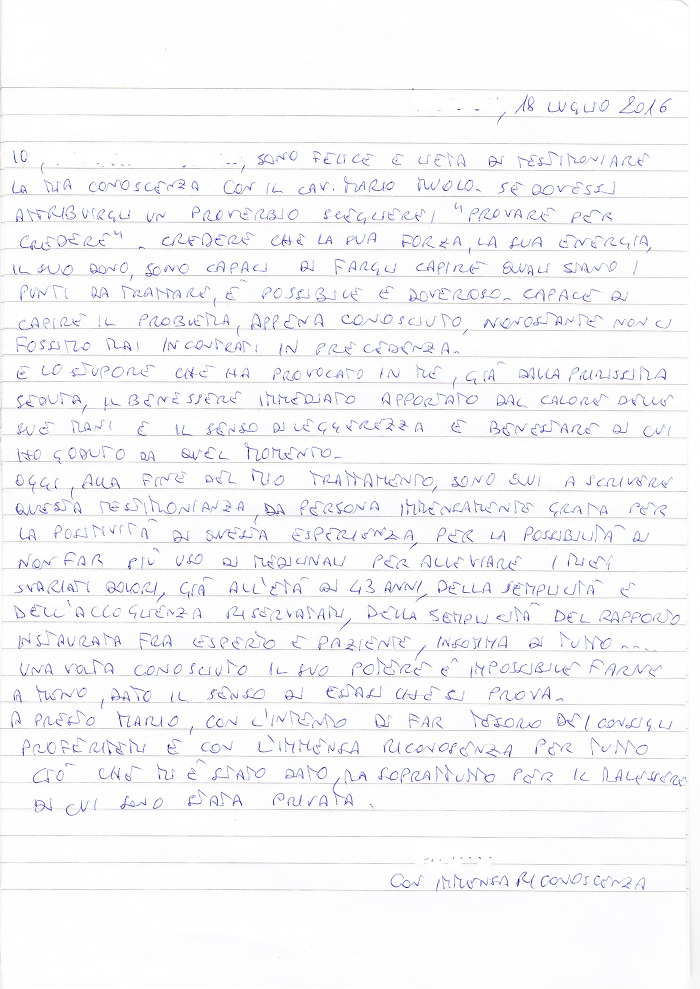 , 18 LUGLIO 2016
IO, , SONO FELICE E LIETA DI TESTIMONIARE
LA MIA CONOSCENZA CON IL CAV. MARIO MUOLO. SE DOVESSI
ATTRIBUIRGLI UN PROVERBIO SCEGLIEREI "PROVARE PER
CREDERE". CREDERE CHE LA SUA FORZA, LA SUA ENERGIA,
IL SUO DONO, SONO CAPACI DI FARGLI CAPIRE QUALI SIANO I
PUNTI DA TRATTARE, È POSSIBILE E DOVEROSO. CAPACE DI
CAPIRE IL PROBLEMA, APPENA CONOSCIUTO, NONOSTANTE NON CI
FOSSIMO MAI INCONTRATI IN PRECEDENZA.
E LO STUPORE CHE HA PROVOCATO IN ME, GIÀ DALLA PRIMISSIMA
SEDUTA, IL BENESSERE IMMEDIATO APPORTATO DAL CALORE DELLE
SUE MANI E IL SENSO DI LEGGEREZZA E BENESTARE DI CUI
HO GODUTO DA QUEL MOMENTO.
OGGI, ALLA FINE DEL MIO TRATTAMENTO, SONO QUI A SCRIVERE
QUESTA TESTIMONIANZA, DA PERSONA IMMENSAMENTE GRATA PER
LA POSITIVITÀ DI QUESTA ESPERIENZA, PER LA POSSIBILITÀ DI
NON FAR PIÙ USO DI MEDICINALI PER ALLEVIARE I MIEI
SVARIATI DOLORI, GIÀ ALL'ETÀ DI 43 ANNI, DELLA SEMPLICITÀ E
DELL'ACCOGLIENZA RISERVATAMI, DELLA SEMPLICITÀ DEL RAPPORTO
INSTAURATA FRA ESPERTO E PAZIENTE, INSOMMA DI TUTTO....
UNA VOLTA CONOSCIUTO IL SUO POTERE È IMPOSSIBILE FARNE
A MENO, DATO IL SENSO DI ESTASI CHE SI PROVA.
A PRESTO MARIO, CON L'INTENTO DI FAR TESORO DEI CONSIGLI
PROFERITEMI E CON L'IMMENSA RICONOSCENZA PER TUTTO
CIÒ CHE MI È STATO DATO, MA SOPRATTUTTO PER IL MALESSERE
DI CUI SONO STATA PRIVATA.
CON IMMENSA RICONOSCENZA